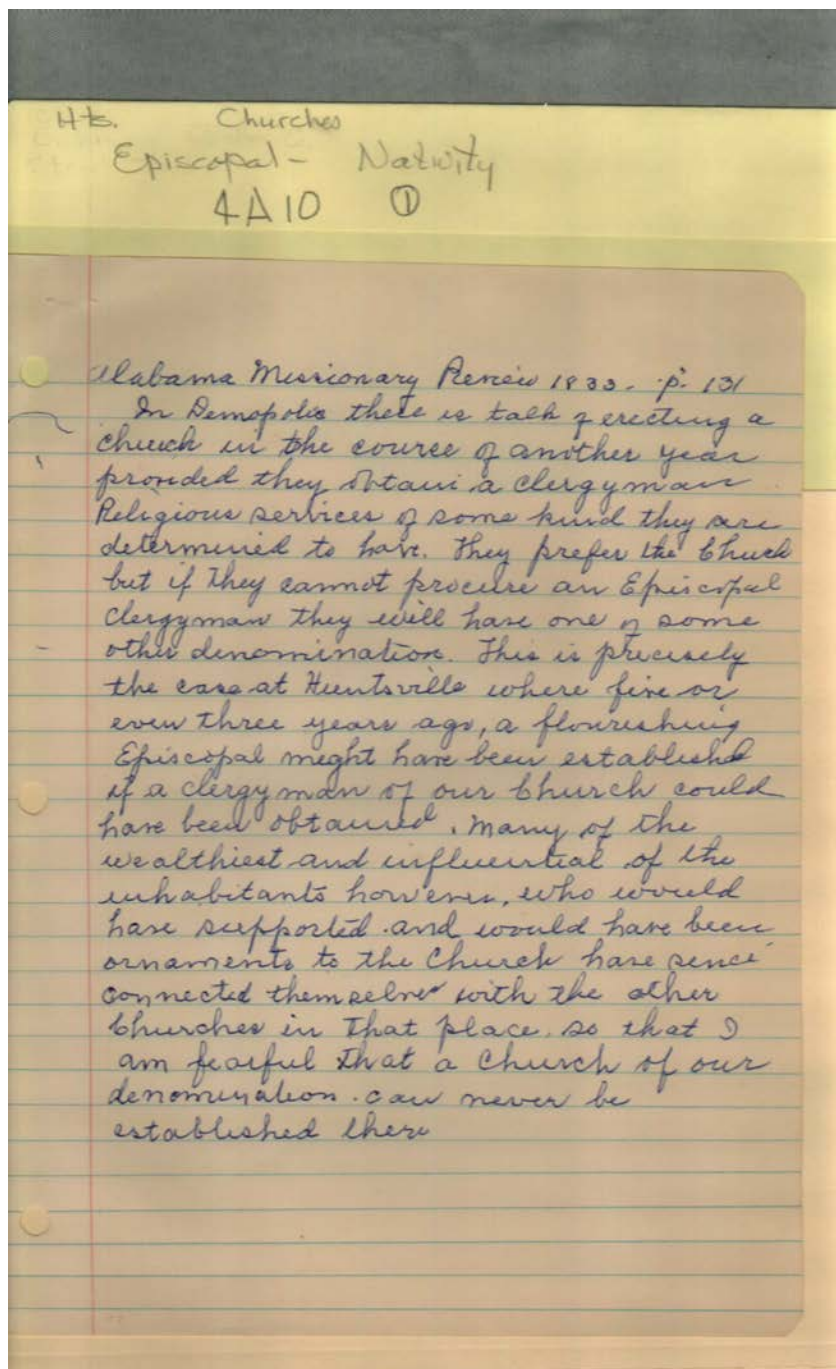 Hts. Churches
Episcopal - Nativity
4A10 ①
Alabama Missionary Review 1833 - p. 131
In Demopolis there is talk of erecting a
church in the course of another year
provided they obtain a clergyman
Religious services of some kind they are
determined to have. They prefer the Church
but if they cannot procure an Episcopal
Clergyman they will have one of some
other denomination. This is precisely
the case at Huntsville where five or
even three years ago, a flourishing
Episcopal might have been established
if a clergyman of our Church could
have been obtained. Many of the
wealthiest and influential of the
inhabitants however, who would
have supported and would have been
ornaments to the Church have since
connected themselves with the other
Churches in that place. so that I
am fearful that a Church of our
denomination can never be
established there